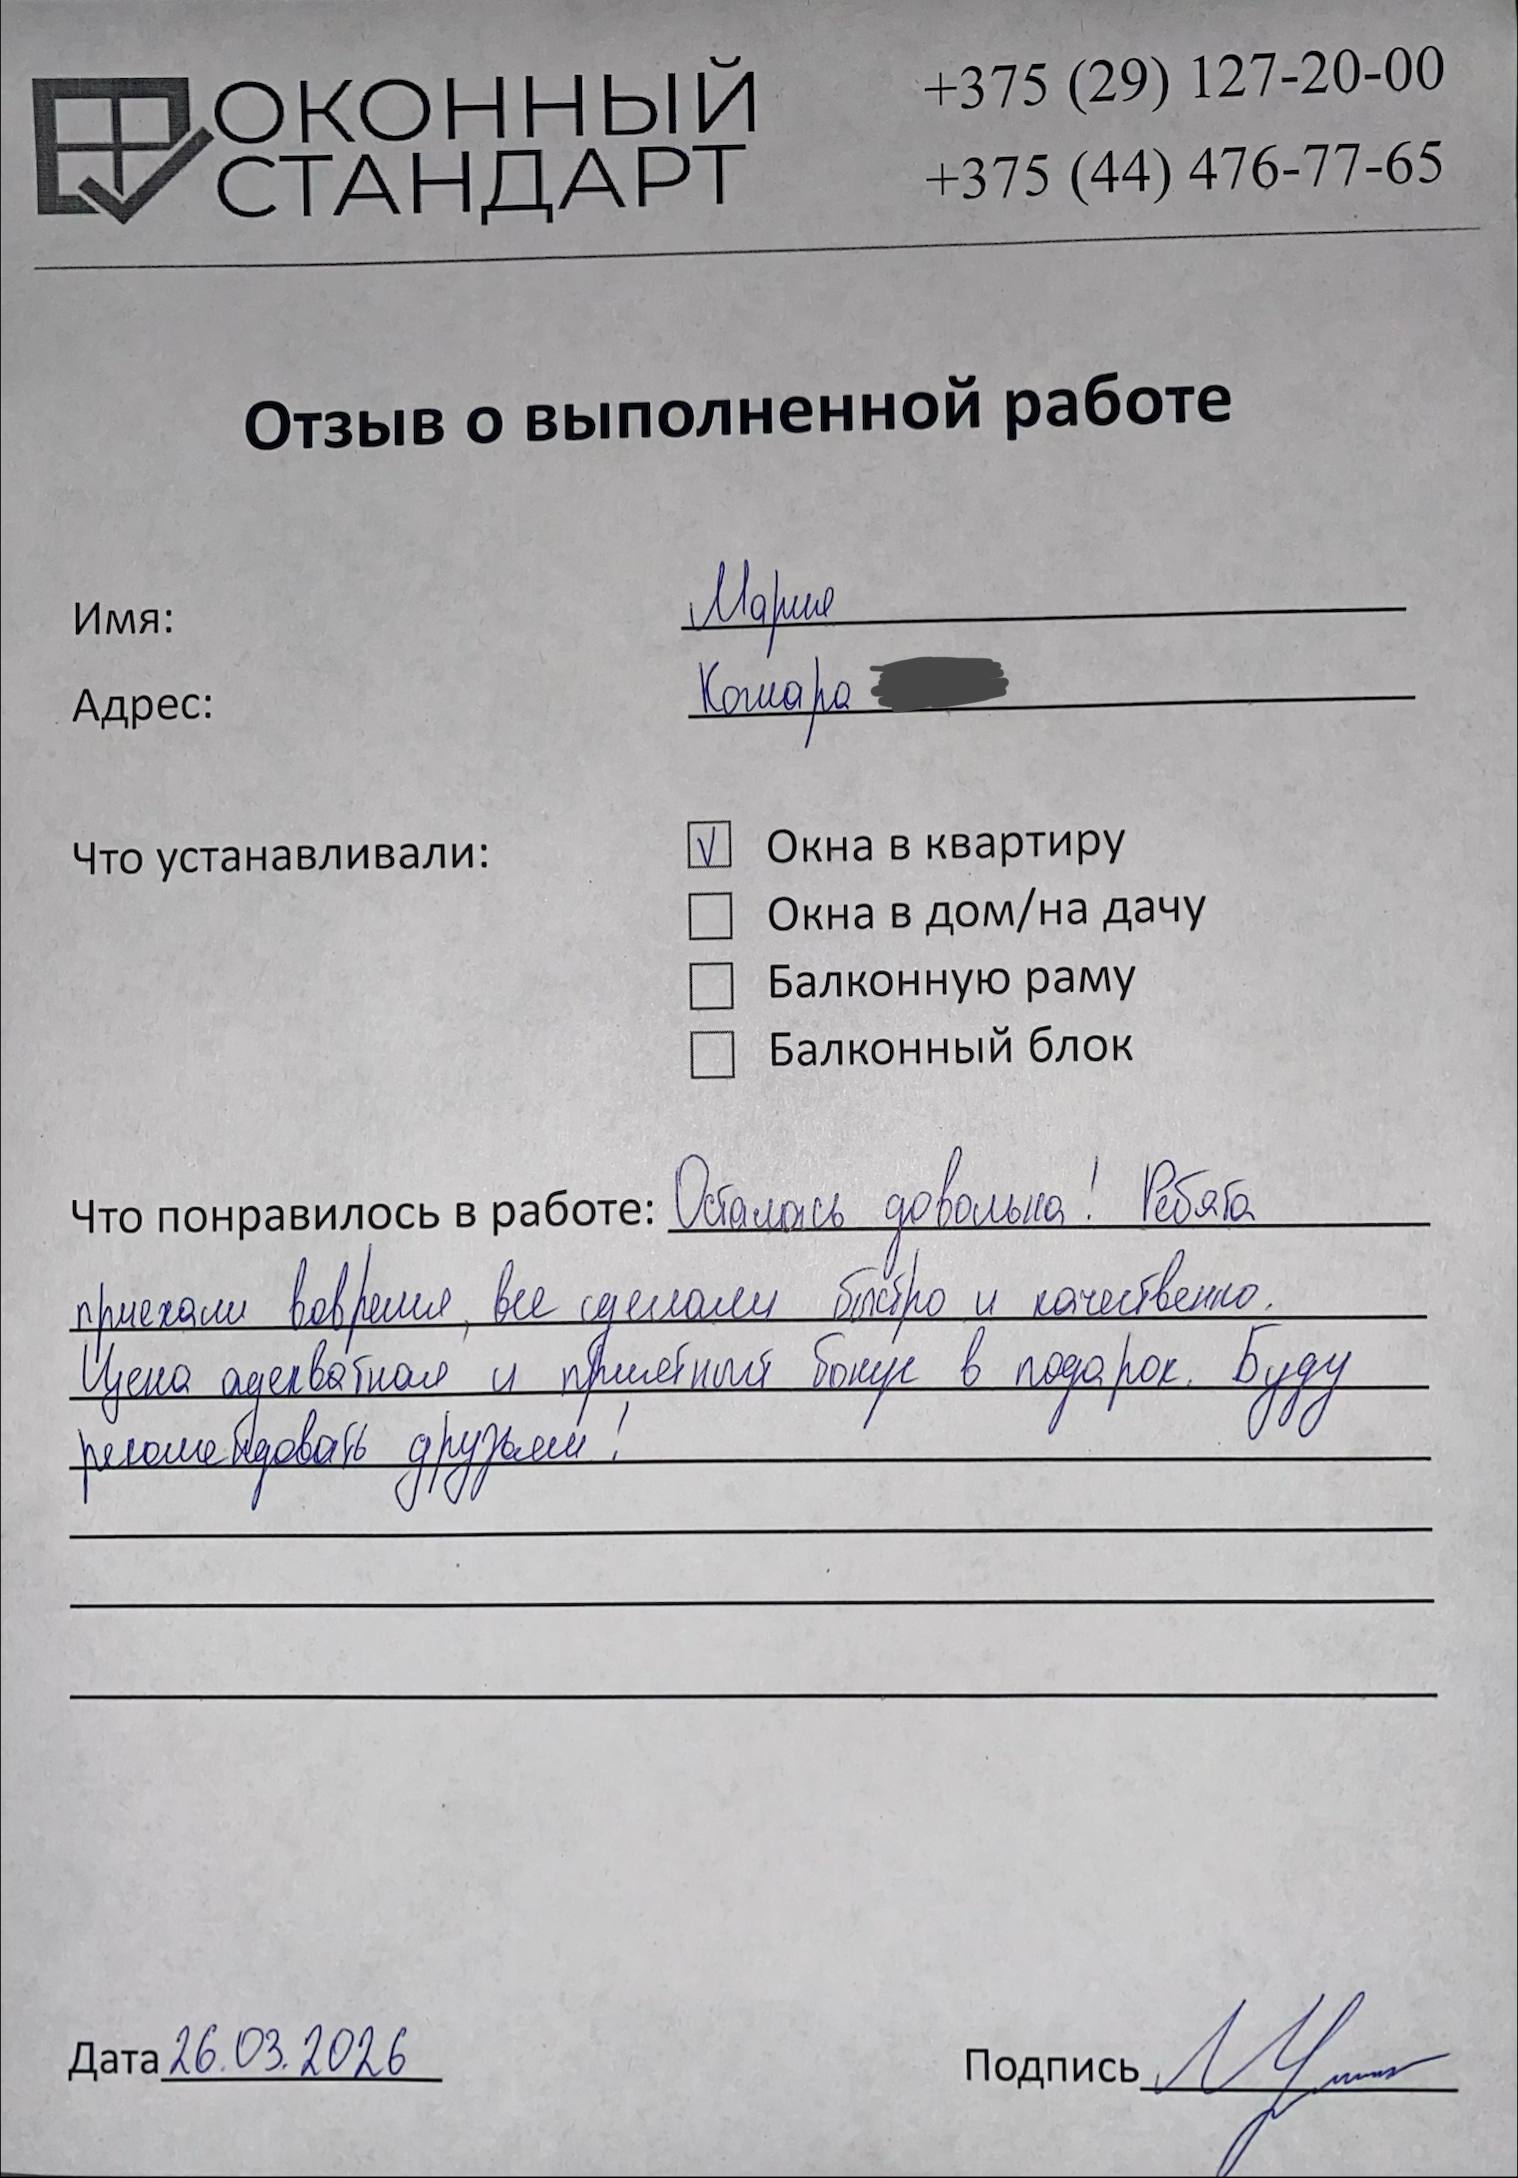 ОКОННЫЙ
СТАНДАРТ
+375 (29) 127-20-00
+375 (44) 476-77-65
Отзыв о выполненной работе
Имя: Мария
Адрес: Комара
Что устанавливали: V Окна в квартиру
Окна в дом/на дачу
Балконную раму
Балконный блок
Что понравилось в работе: Осталась довольна! Ребята
приехали вовремя, все сделали быстро и качественно.
Цена адекватная и приятный бонус в подарок. Буду
рекомендовать друзьям!
Дата 26.03.2026
Подпись